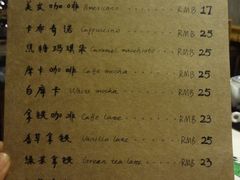 美式咖啡 Americano RMB 17
卡布奇诺 Cappuccino RMB 25
焦糖玛琪朵 Caramel macchiato RMB 25
摩卡咖啡 Caffe mocha RMB 25
白摩卡 White mocha RMB 25
拿铁咖啡 Caffe latte RMB 23
香草拿铁 Vanilla latte RMB 25
绿茶拿铁 Green tea latte RMB 23